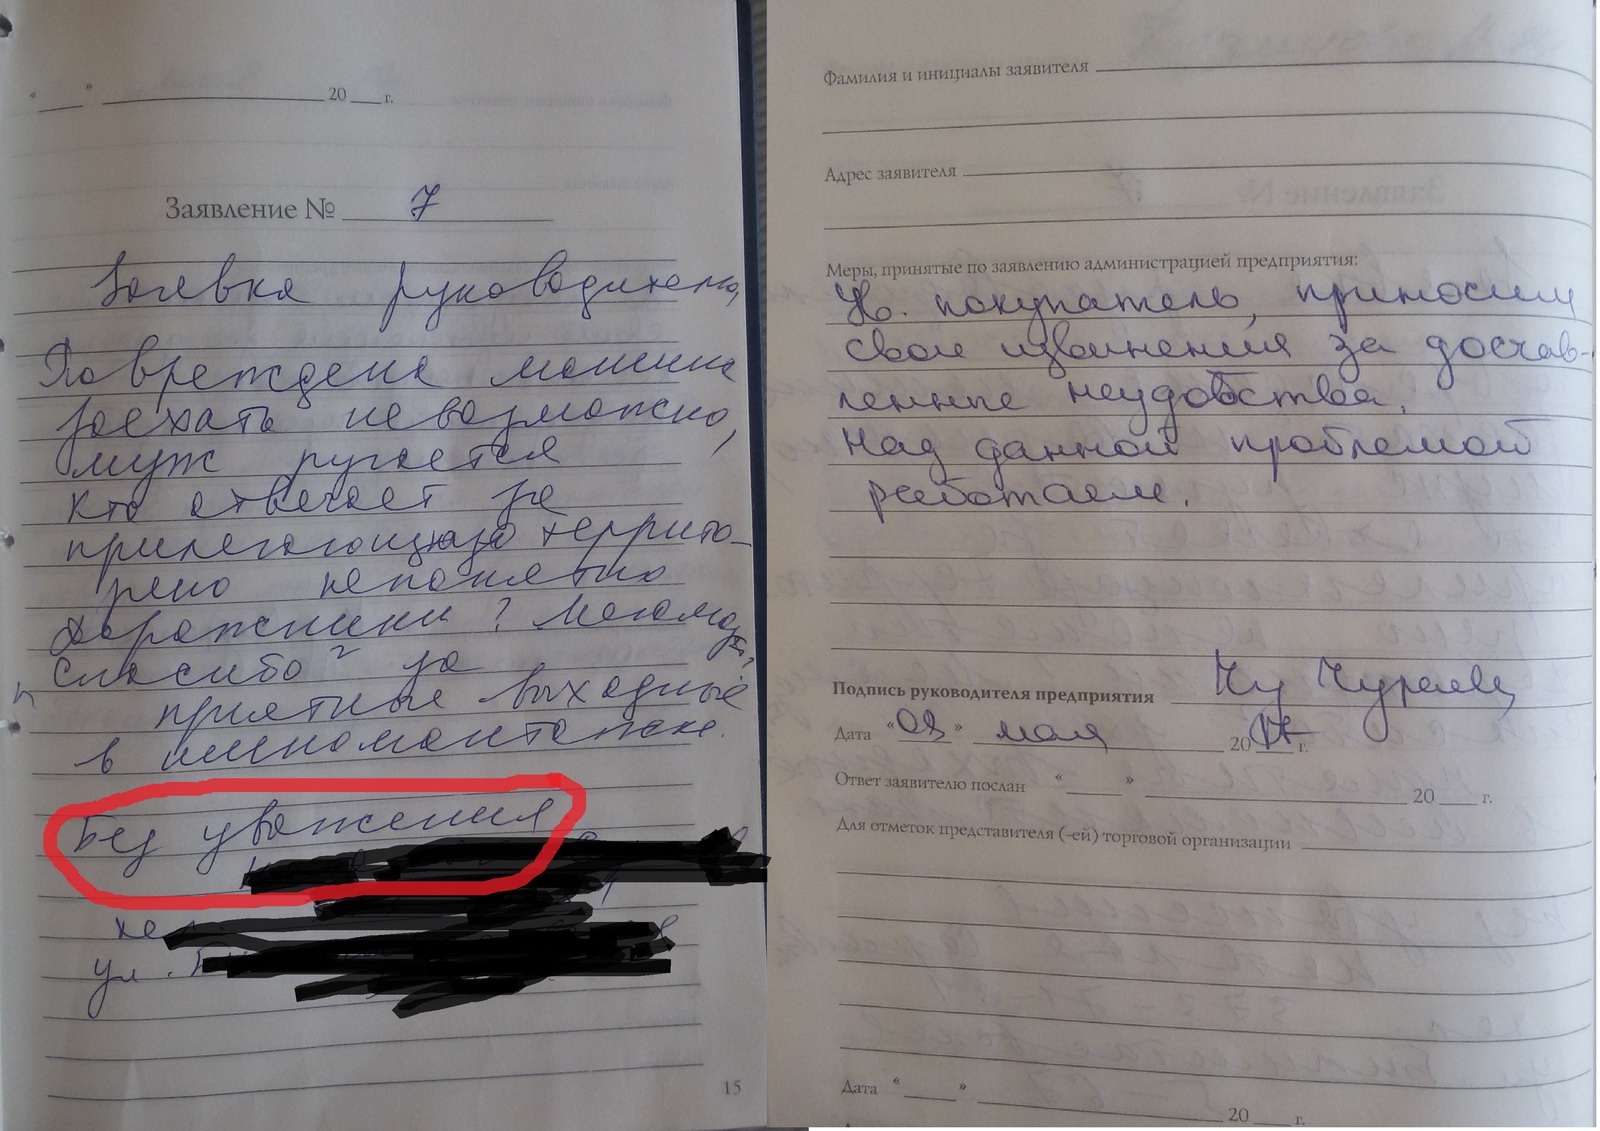 « » 20 г.
Заявление № 7
Заявка руководителю,
Повреждена машина
заехать невозможно,
муж ругается
кто отвечает за
прилегающую террито-
рию непонятно
Дорожники?
Спасибо за
приятные выходные
в шиномонтаже.
Без уважения
ул.
15
Фамилия и инициалы заявителя
Адрес заявителя
Меры, принятые по заявлению администрацией предприятия:
Ув. покупатель, приносим
свои извинения за достав-
ленные неудобства.
Над данной проблемой
работаем.
Подпись руководителя предприятия
Дата « » мая 20 17 г.
Ответ заявителю послан « » 20 г.
Для отметок представителя (-ей) торговой организации
Дата « » 20 г.